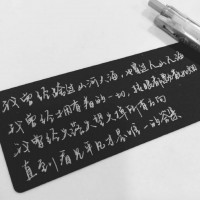 我曾经跨过山河大海，也穿过人山人海
我曾经拥有着的一切，转眼都飘散如烟
我曾经失落失望失掉所有方向
直到看见平凡才是唯一的答案